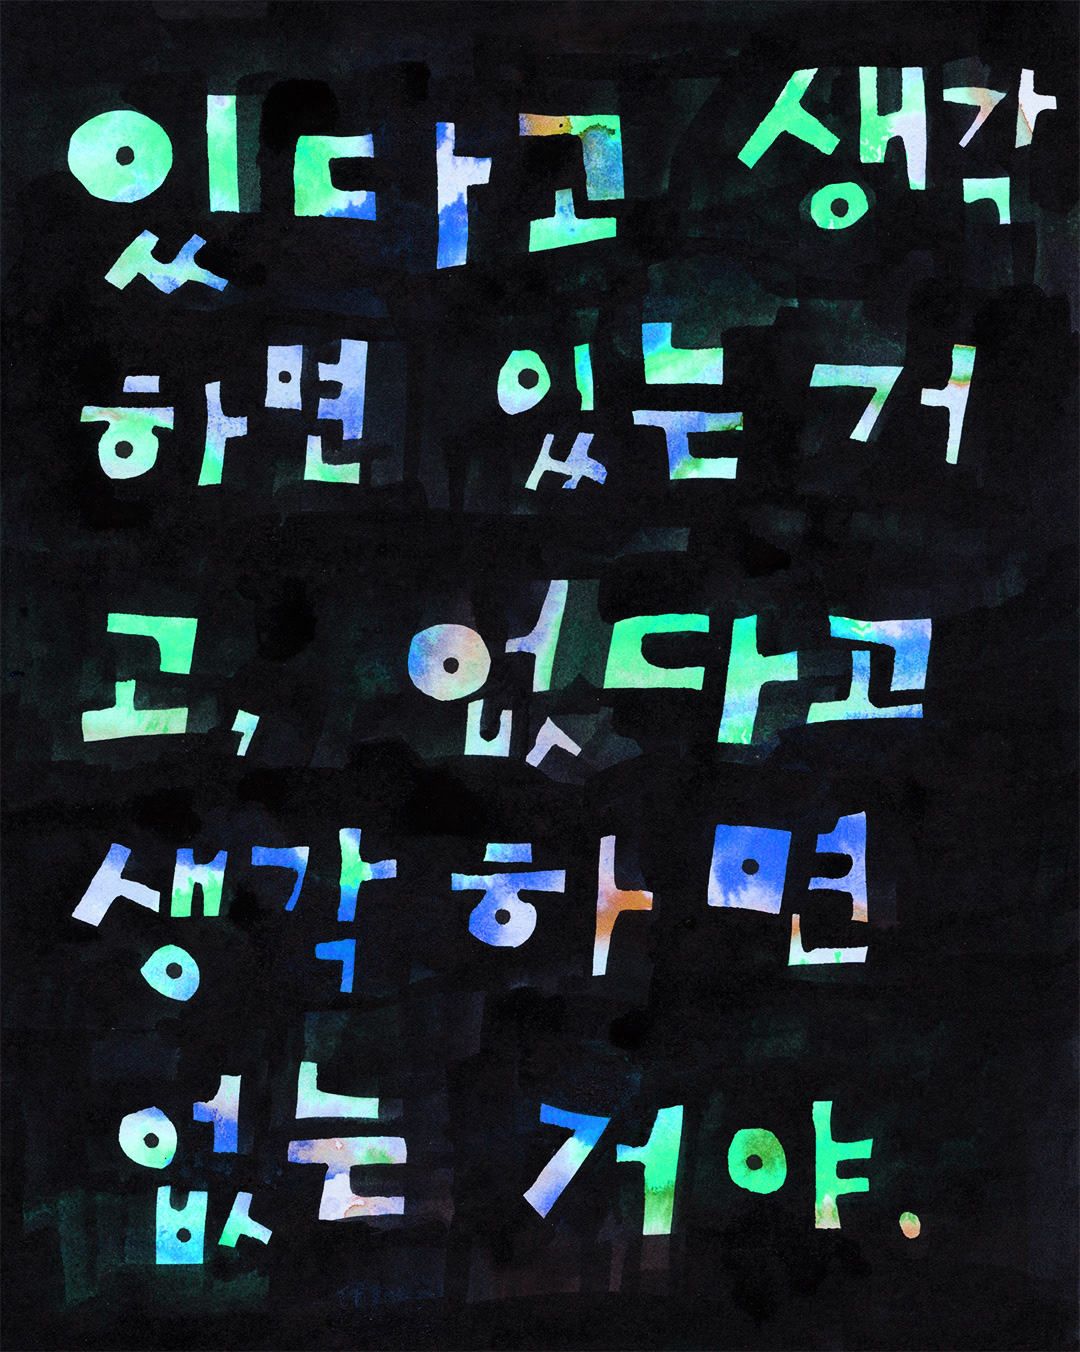 있다고 생각
하면 있는 거
고, 없다고
생각하면
없는 거야.